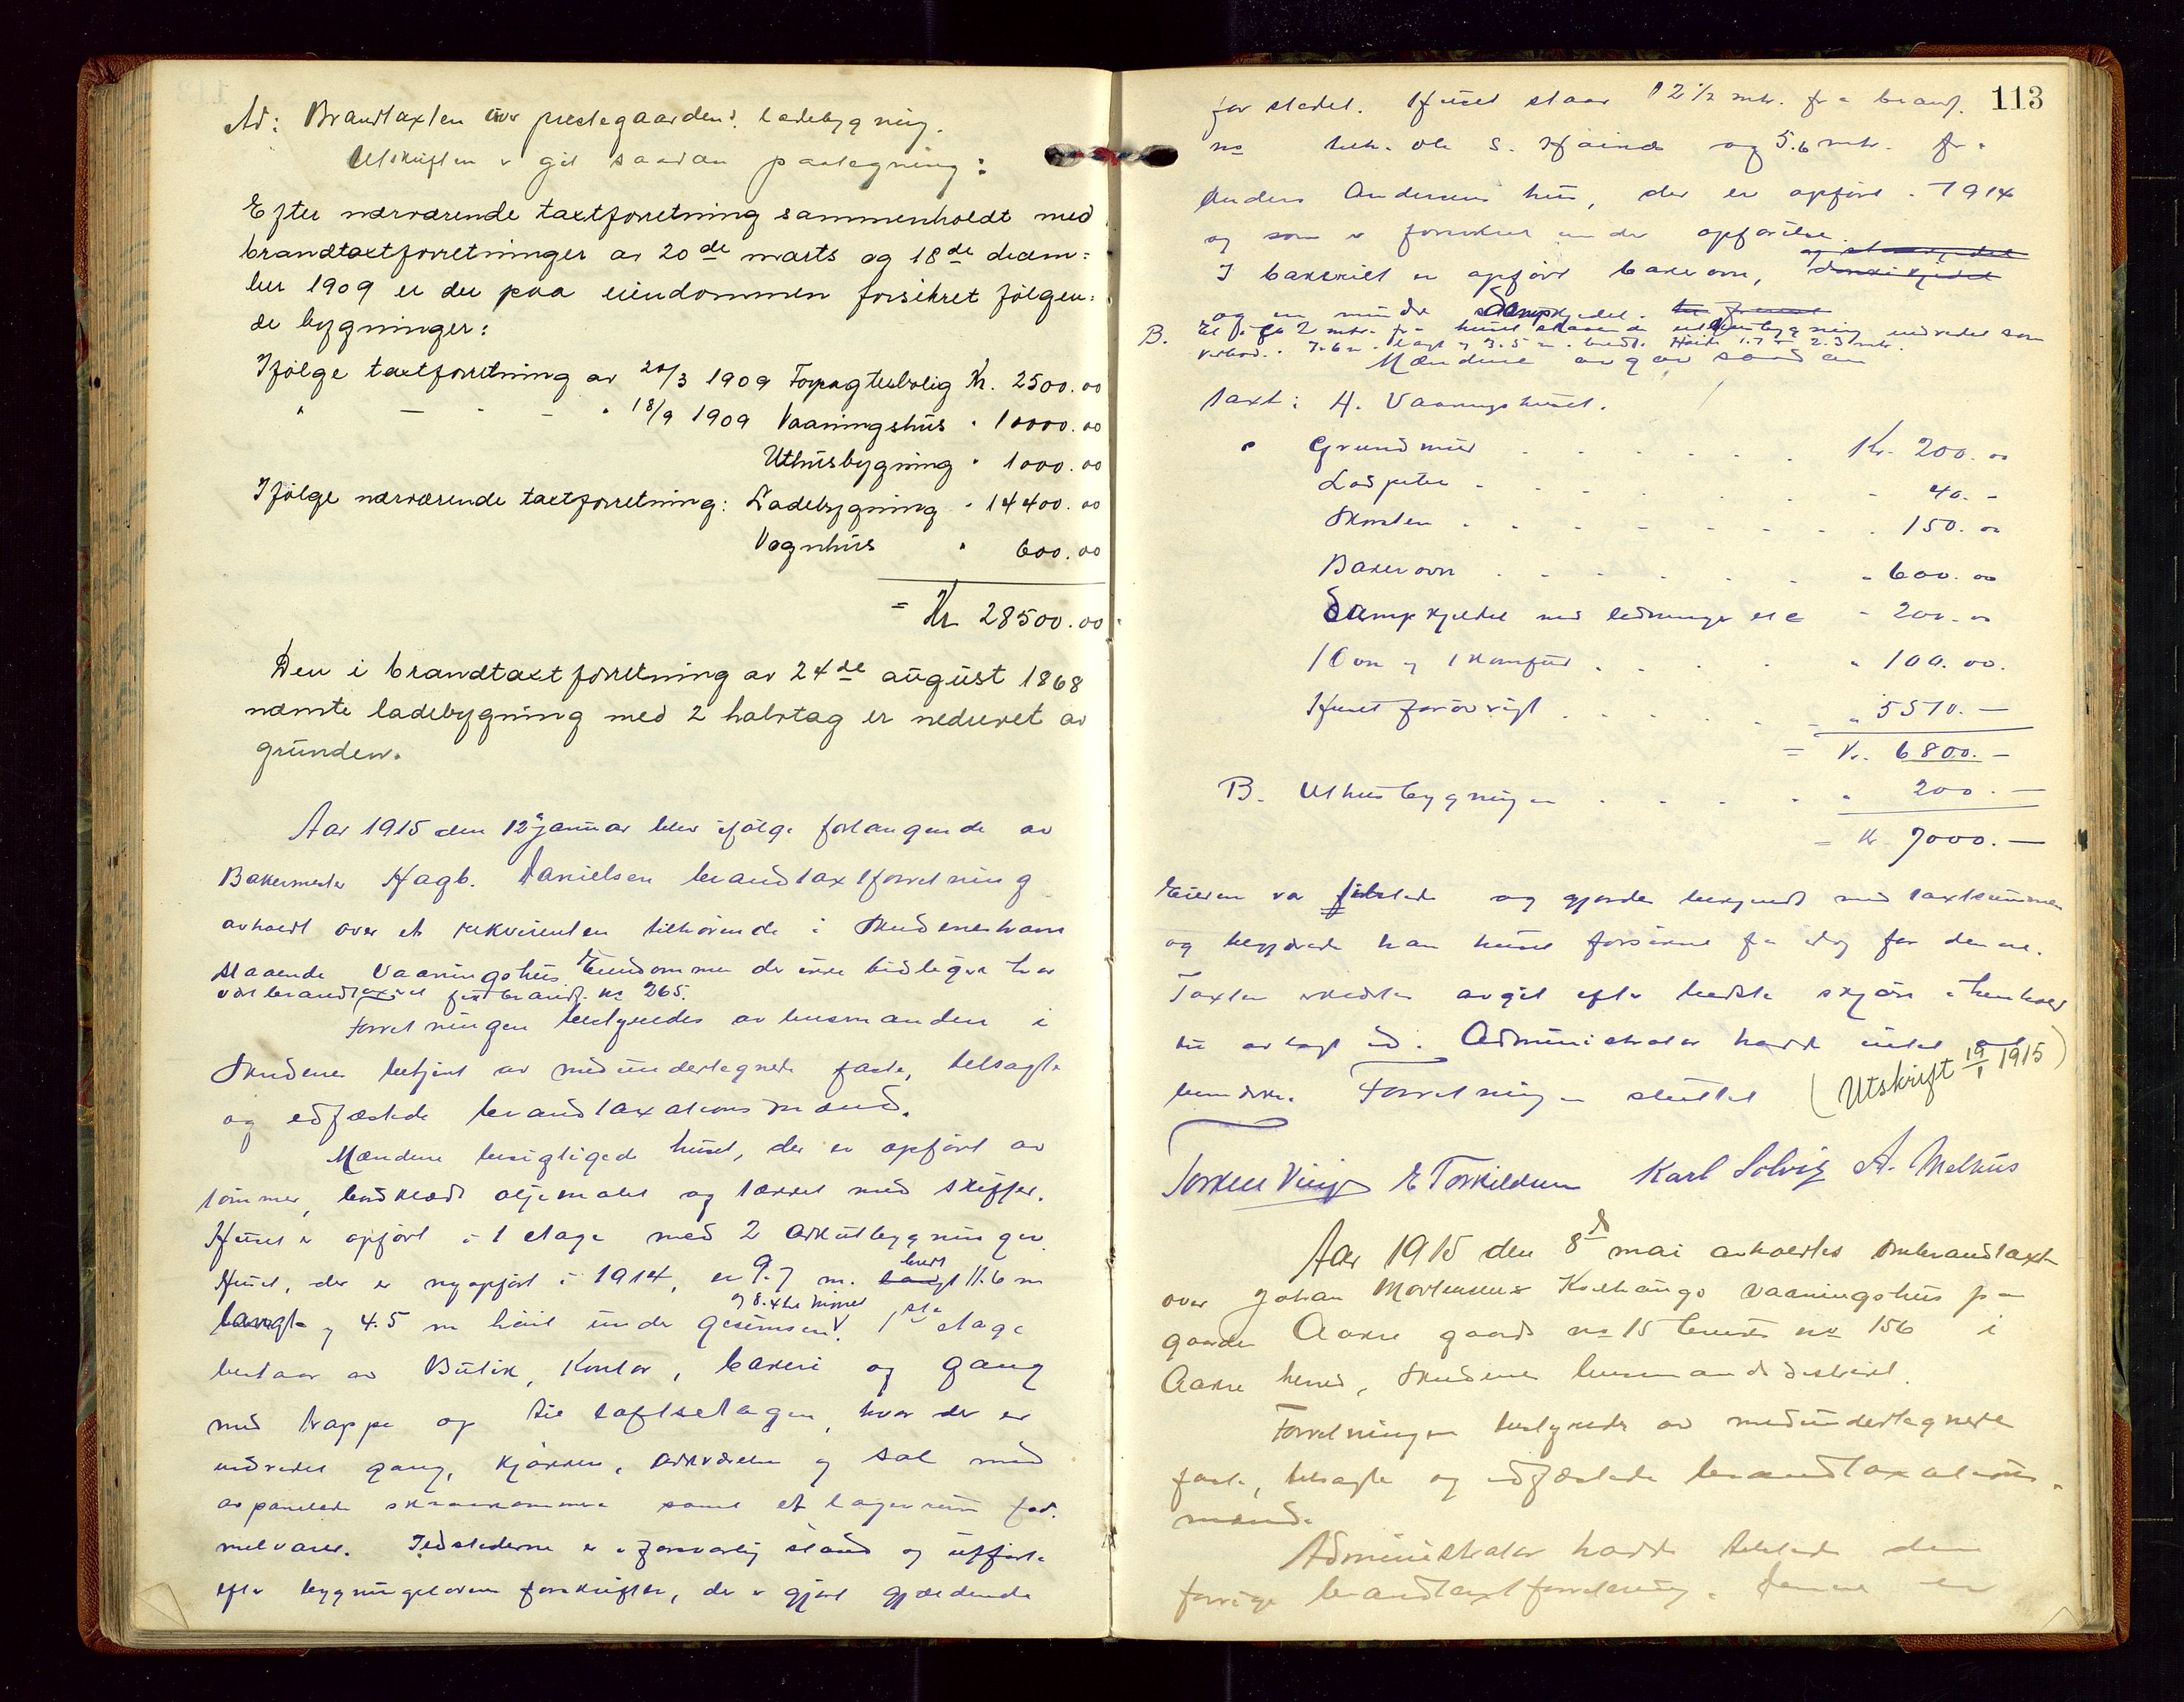 Ad: Brandtaxten over prestegaardens ladebygning.
Utskriften er git saadan paategning:
Efter nærværende taxtforretning sammenholdt med
brandtaxtforretninger av 20de marts og 18de decem-
ber 1909 er der paa eiendommen forsikret følgen-
de bygninger:
Ifølge taxtforretning av 20/3 1909 Forpagterbolig Kr. 2500.00
" — " — " 18/9 1909 Vaaningshus " 10000.00
Uthusbygning " 1000.00
Ifølge nærværende taxtforretning: Ladebygning " 14400.00
Vognhus " 600.00
= Kr 28500.00
Den i brandtaxtforretning av 24de august 1868
nævnte ladebygning med 2 halvtag er nedrevet av
grunden.
Aar 1915 den 12te januar blev ifølge forlangende av
Bakermester Hagb. Danielsen brandtaxtforretning
avholdt over et rekvirenten tilhørende i Skudeneshavn
staaende Vaaningshus. Eiendommen der ikke tidligere har
vært brandtaxeret før brandf. no 265.
Forretningen bestyredes av lensmanden i
Skudenes betjent av medundertegnede faste, tilsagte
og edfæstede brandtaxationsmænd.
Mændene besigtigede huset, der er opført av
tømmer, bordklædt oljemalet og tækket med skiffer.
Huset er opført i 1 etage med 2 arkutbygninger.
Huset, der er nyopført i 1914, er 9.7 m. bredt 11.6 m
langt og 4.5 m høit under gesimsen og 8.4 til mønet. 1ste etage
bestaar av Butik, Kontor, bakeri og gang
med trappe op til loftsetagen, hvor der er
indredet gang, kjøkken, arkværelse og sal med
avpanelede skraakammere samt et lagerrum for
melvarer. Ildstederne er i forsvarlig stand og utført
efter bygningslovens forskrifter, der er gjort gjældende
113
for stedet. Huset staar 12 1/2 mtr. fra brandf.
no tilh. Ole S. og 5.6 mtr. fra
Anders Andersens hus, der er opført i 1914
og som er forsikret under opførelse.
I bakeriet er opført bakerovn,
og en mindre Dampkjedel.
B. Et ca 2 mtr. fra huset staaende uthusbygning indredet som
vedbod. 7.6 m. langt og 3.5 m. bredt. Høide 1.7 og 2.3 mtr.
Mændene avgav saadan
taxt: A. Vaaningshuset.
Grundmur Kr. 200.00
Lospiter " 40.-
Skorsten " 150.00
Bakerovn " 600.00
Dampkjedel med ledninger etc " 200.00
1 Ovn og 1 komfur " 100.00.
Huset forøvrigt " 5510.—
= Kr. 6800.—
B. Uthusbygningen " 200.—
= Kr 7000.—
Eieren var tilstede og gjordes bekjendt med taxtsummen
og begjærede han huset forsikret fra idag for denne.
Taxten erklædes avgit efter bedste skjøn i henhold
til avlagt ed. Administrator hadde intet at
bemerke. Forretningen sluttet
(Utskrift 19/1 1915)
E Torkildsen Karl Solvig A. Melhus
Aar 1915 den 8de mai avholdtes ombrandtaxt
over Johan Mortensens vaaningshus paa
gaarden Aakre gaards no 15 bruks no 156 i
Aakre herred, Skudenes lensmandsdistrikt.
Forretningen bestyredes av medundertegnede
faste, tilsagte og edfæstede brandtaxations-
mænd.
Administrator hadde tilstede den
forrige brandtaxtforretning. Denne er